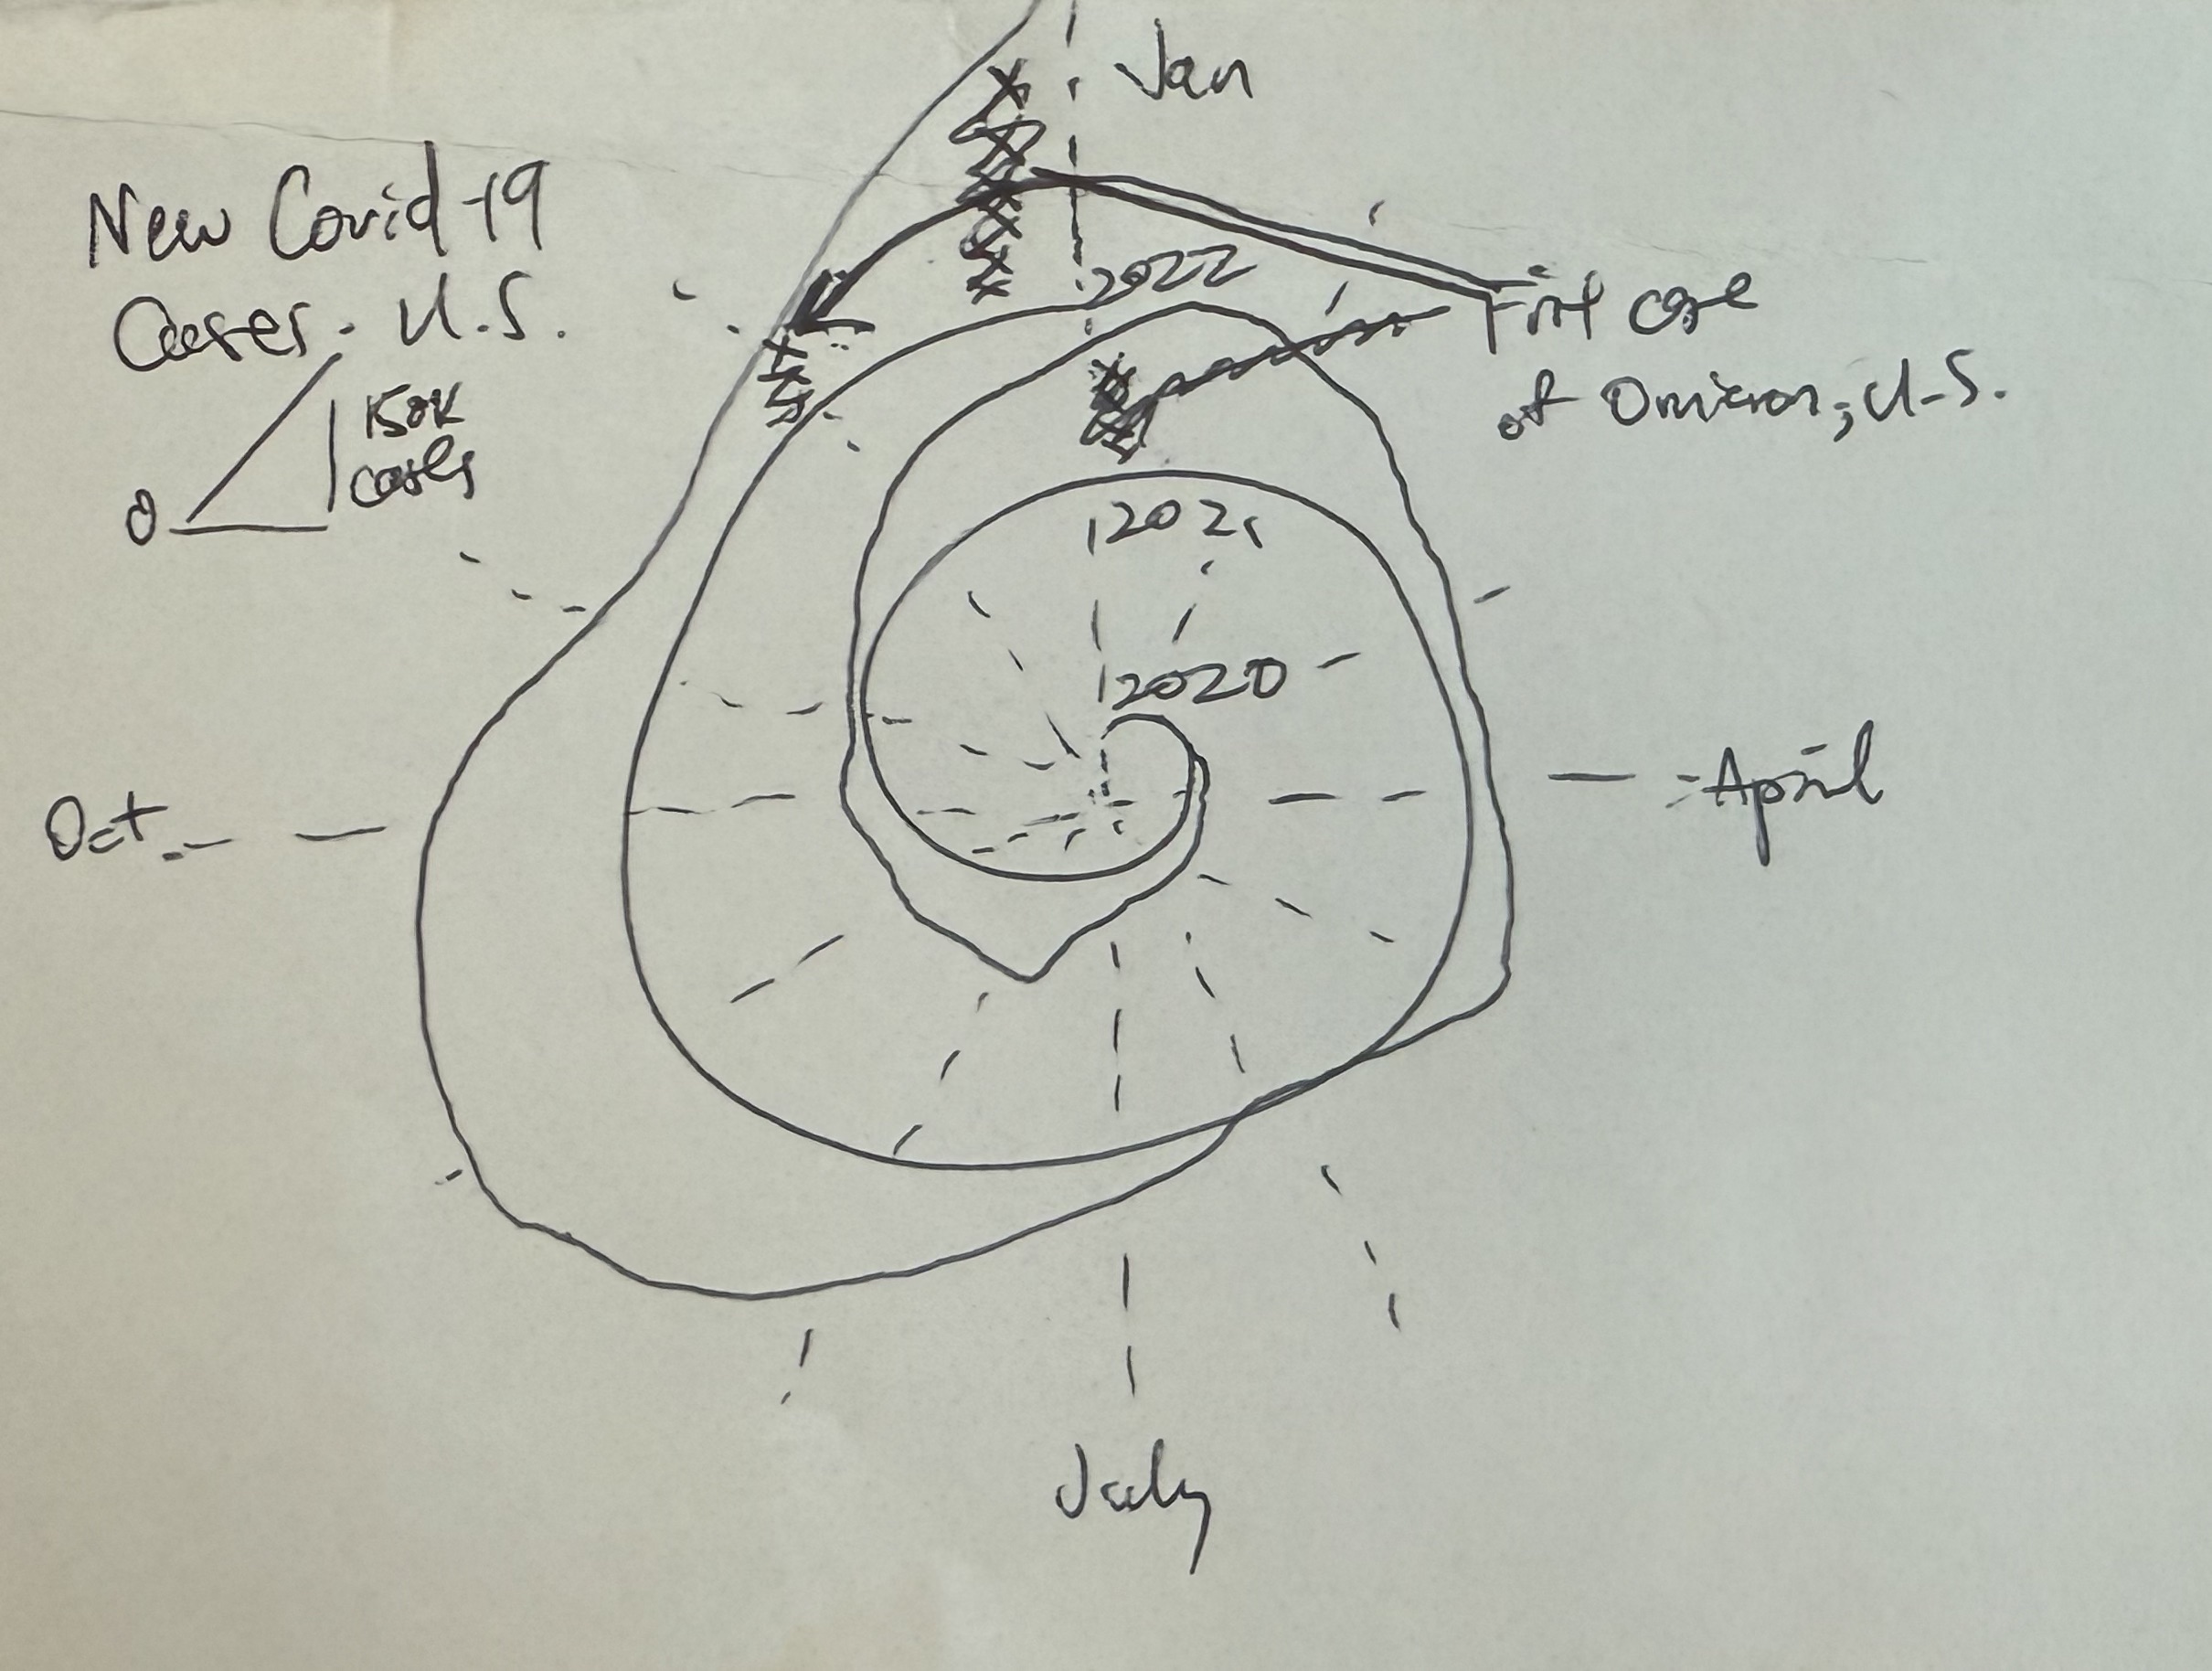 Jan
New Covid-19
Cases. U.S.
150K
cases
0
2022
First case
of Omicron, U.S.
2021
2020
Oct
April
July